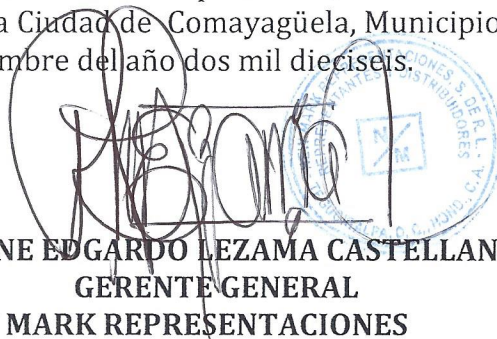 a Ciudad de Comayagüela, Municipio
mbre del año dos mil dieciseis.
REPRESENTACIONES S. DE R. L.
DISTRIBUIDORES
N/M
HOND., C. A.
NE EDGARDO LEZAMA CASTELLAN
GERENTE GENERAL
MARK REPRESENTACIONES